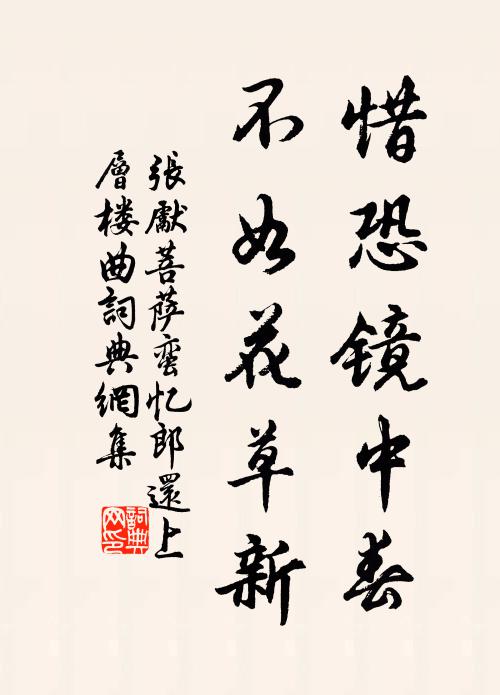 惜恐镜中春
不如花草新
張獻菩薩蛮忆郎還上
層楼曲詞典網集
詞典
网印